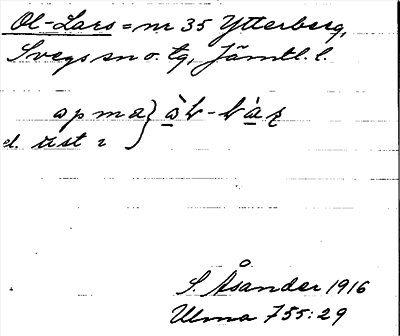 Ol-Lars = nr 35 Ytterberg,
Svegs sn o. tg, Jämtl. l.
s p m a } 
d. sist i
S. Åsander 1916
Ulma 755:29